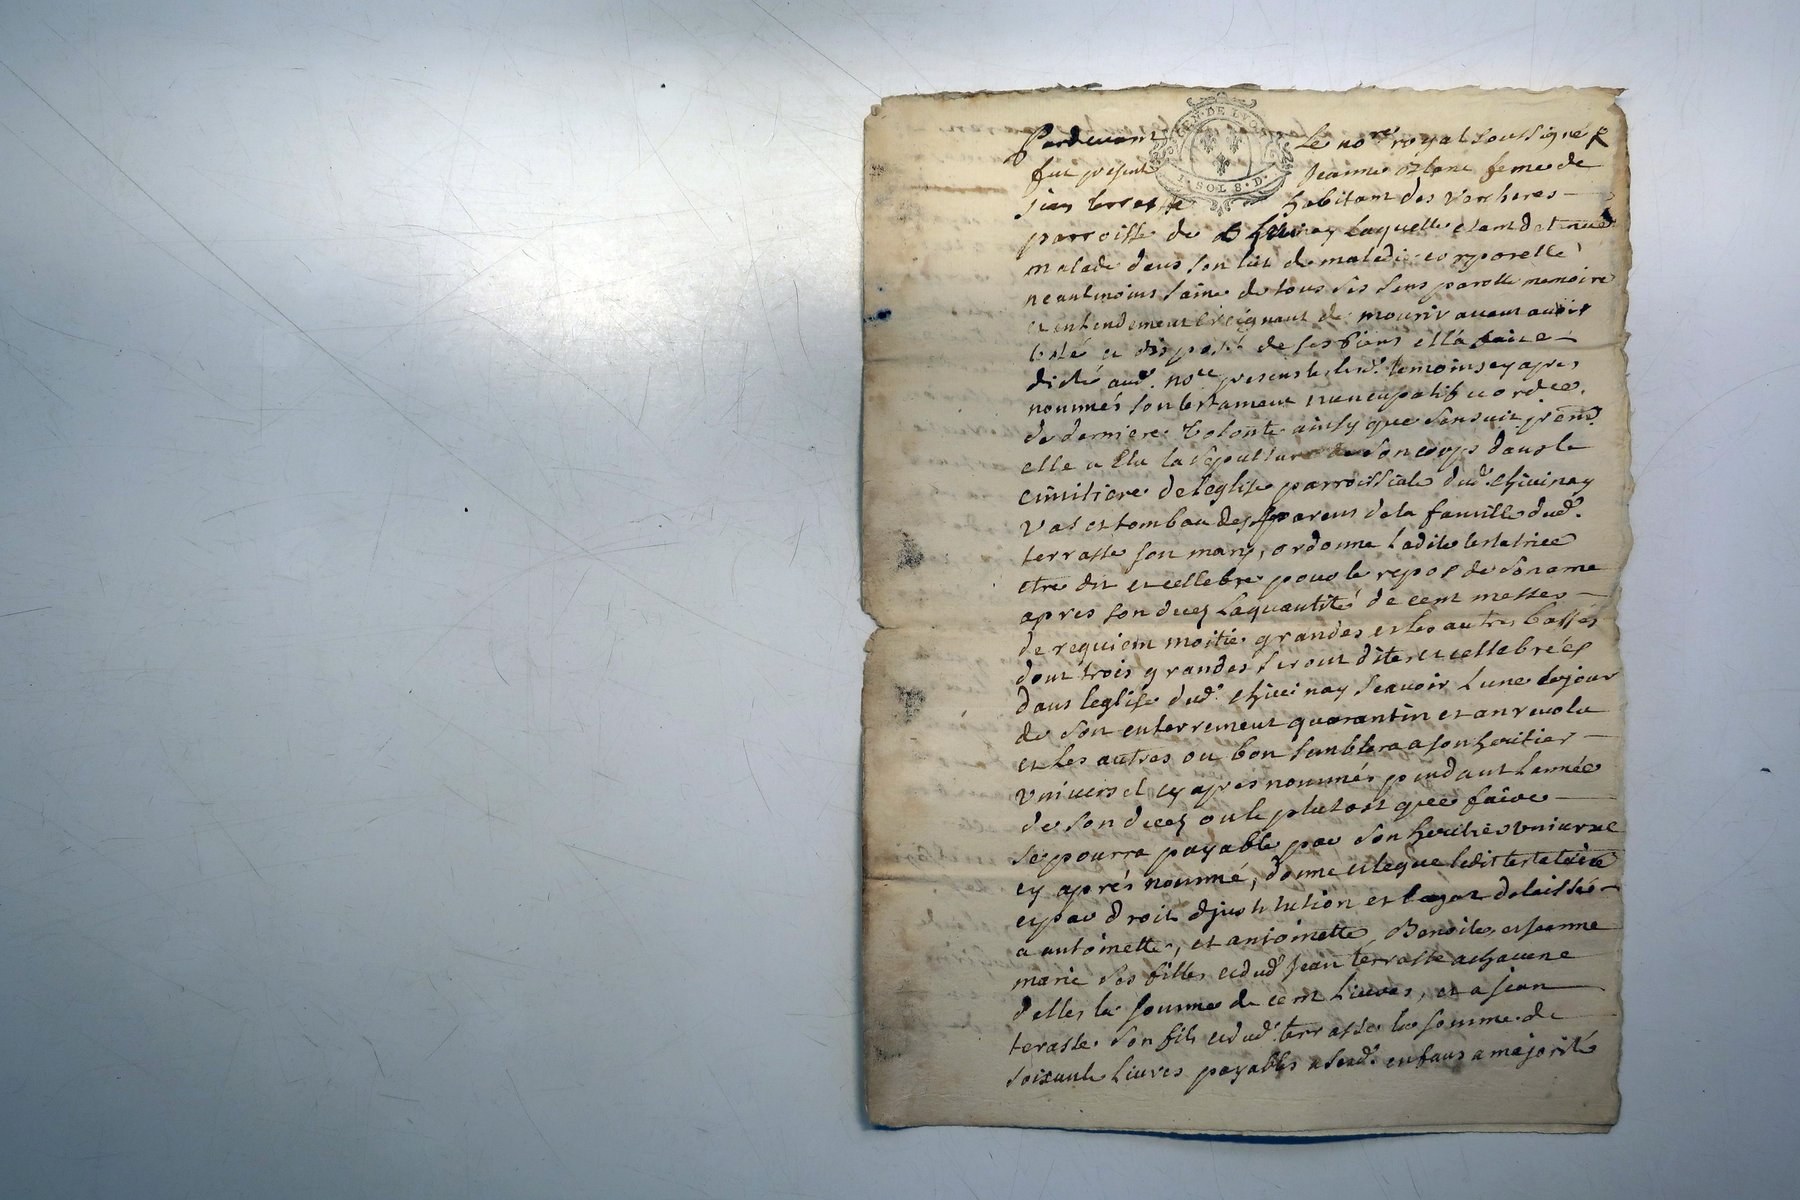 GEN. DE LYON
I. SOL 8. D.
Pardevant Le nore royal soussigné
fut presente Jeanne blanc feme de
jean terrasse habitant des Vercheres
parroisse de Chivinay Laquelle etant detenue
malade dans son lit de maladie corporelle
neautmoins saine de tous ses sens parolle memoire
et entendement Creignant de mourir avant avoir
testé et disposé de ses biens ella faict
dicté aud. nore presents les d. temoins cy apres
nommés son testament nuncupatif et ordce.
de derniere Volonté ainsy que sensuit prem.
elle a Elu la sepulture de son corps dans le
cimitiere de leglise parroissiale dud. Chivinay
Vas et tombau des parens de la famille dud.
terrasse son mary, ordonne Ladite testatrice
etre dit et cellebre pour le repos de son ame
apres son decez La quantité de cent messes
de requiem moitié grandes et les autres basses
dont trois grandes seront dites et cellebrées
dans leglise dud. Chivinay scavoir Lune le jour
de son enterrement quarantin et an revolu
et Les autres ou bon semblera a son heritier
Universel cy apres nommés pendant Lannée
de son decez ou le plutost que faire
se pourra payable par son heritier Universel
cy aprés nommé, donne et legue ledit testatrice
et par droit djnstitution et a delaissé
a antoinette, et antoinette, Benoite, et jeanne
marie ses filles et dud. Jean terrasse a chacune
delles la somme de cent Livres, et a jean
terasse son fils et dud. terrasse la somme de
soixante Livres payables a sesd. enfans a majorité